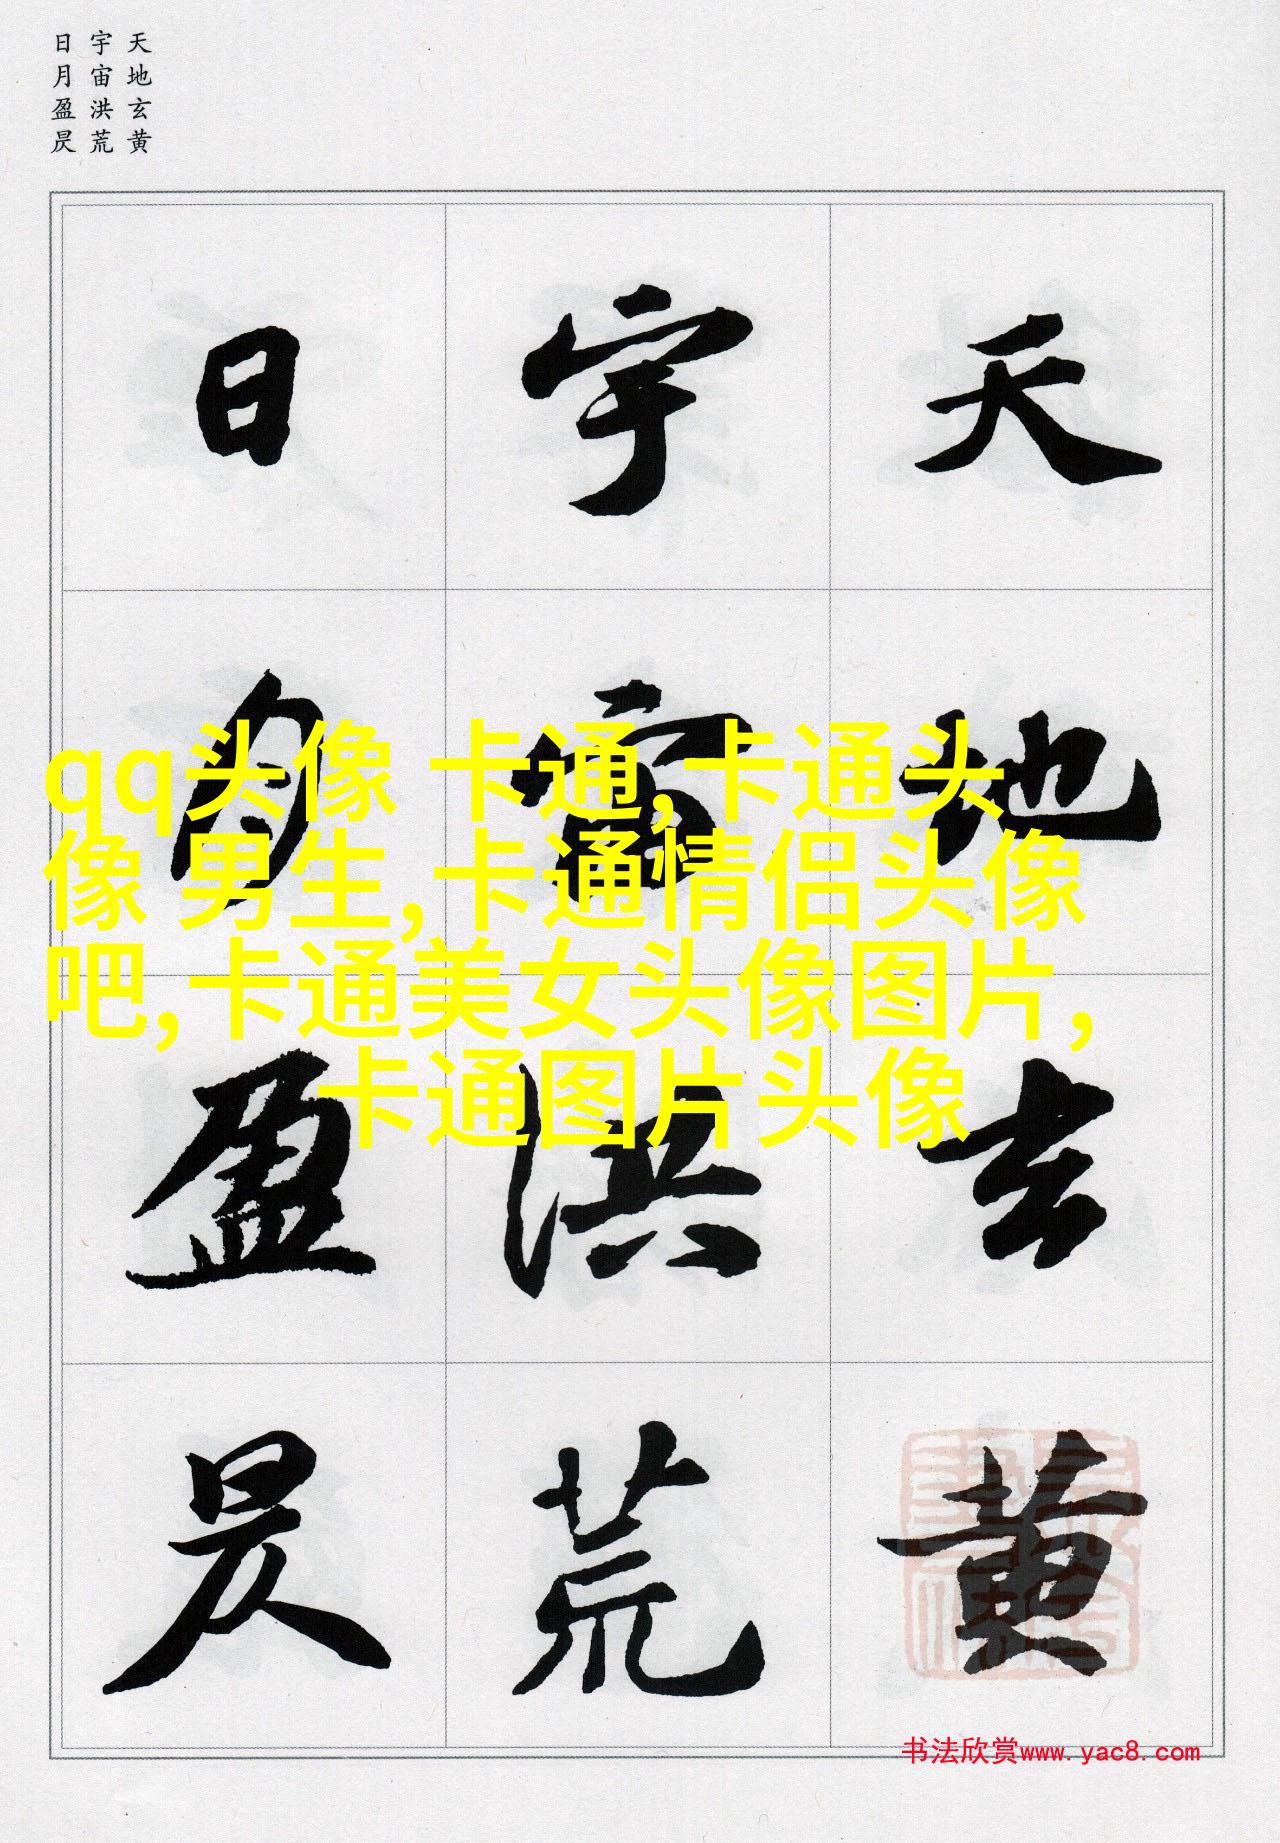 天地玄黄
宇宙洪荒
日月盈昃
天地玄黄
宇宙洪荒
日月盈昃
qq头像 卡通,卡通头
像 男生,卡通情侣头像
吧,卡通美女头像图片,
卡通图片头像
书法欣赏www.yac8.com